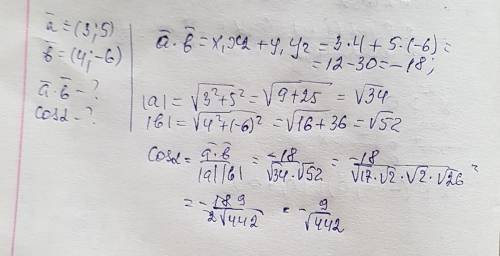 ā = (3; 5)
b̄ = (4; -6)
ā · b̄ - ?
cos α - ?
ā · b̄ = x₁x₂ + y₁y₂ = 3·4 + 5·(-6) =
= 12 - 30 = -18;
|a| = √3²+5² = √9+25 = √34
|b| = √4²+(-6)² = √16+36 = √52
cos α = ā·b̄ / |a||b| = -18 / √34·√52 = -18 / √17·√2·√2·√26 =
= -18 9 / 2√442 = -9 / √442